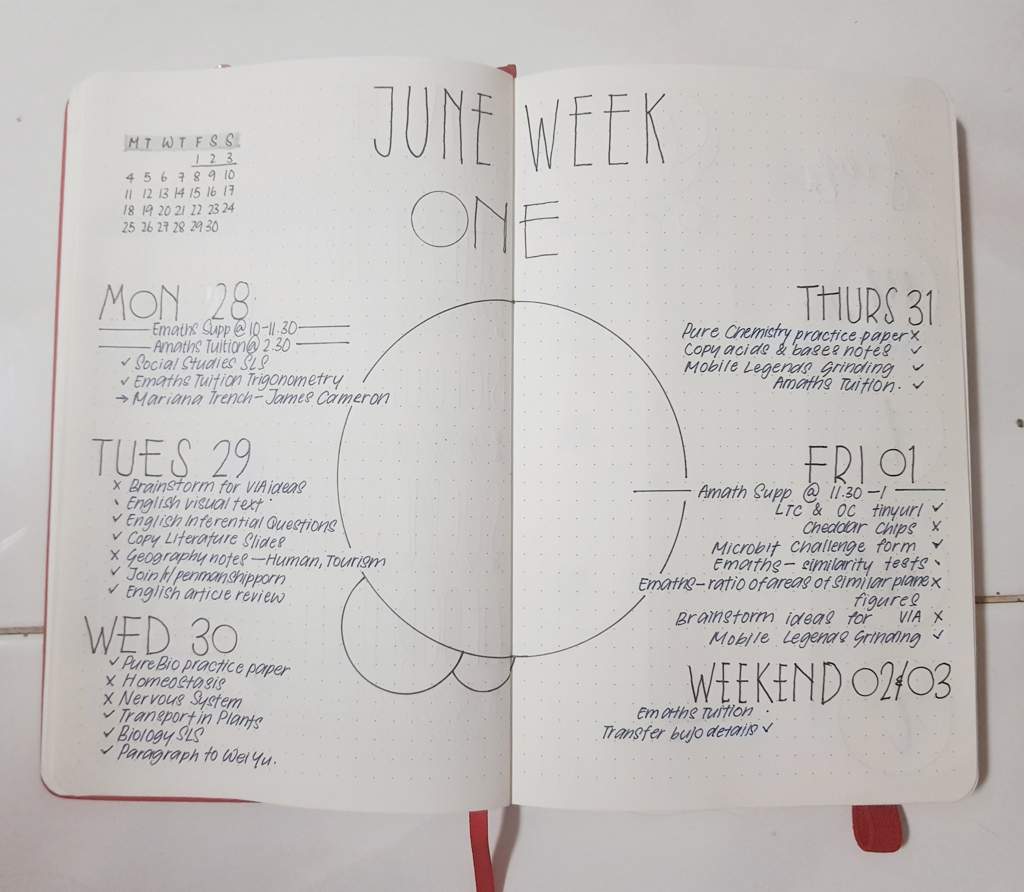 JUNE WEEK
ONE
M T W T F S S
1 2 3
4 5 6 7 8 9 10
11 12 13 14 15 16 17
18 19 20 21 22 23 24
25 26 27 28 29 30
MON 28
Emaths Supp @ 10-11.30
Amaths Tuition @ 2.30
✓ Social Studies SLS
✓ Emaths Tuition Trigonometry
→ Mariana Trench - James Cameron
TUES 29
× Brainstorm for VIA ideas
• English visual text
✓ English Inferential Questions
✓ Copy Literature Slides
× Geography notes - Human, Tourism
✓ Join penmanshipporn
✓ English article review
WED 30
✓ Pure Bio practice paper
× Homeostasis
× Nervous System
✓ Transport in Plants
✓ Biology SLS
✓ Paragraph to Wei Yu.
THURS 31
Pure Chemistry practice paper ×
Copy acids & bases notes ✓
Mobile Legends Grinding ✓
Amaths Tuition. ✓
FRI 01
Amath Supp @ 11.30 - 1
LTC & OC tinyurl ✓
Cheddar Chips ×
Microbit Challenge form ✓
Emaths - similarity tests •
Emaths - ratio of areas of similar plane ×
figures
Brainstorm ideas for VIA ×
Mobile Legends Grinding ✓
WEEKEND 02&03
Emaths Tuition •
Transfer bujo details ✓